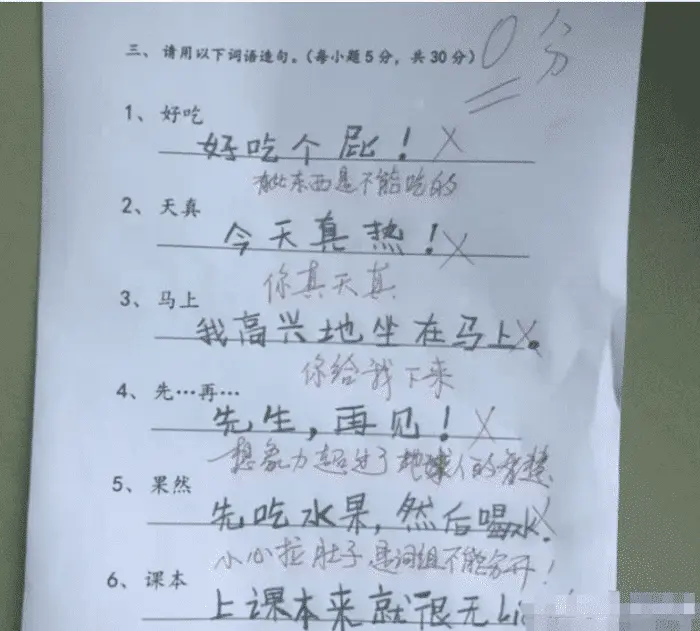 三、请用以下词语造句。(每小题5分，共30分) 0分
1、好吃
好吃个屁！×
有些东西是不能吃的
2、天真
今天真热！×
你真天真
3、马上
我高兴地坐在马上。×
你给我下来
4、先…再…
先生，再见！×
想象力超过了地球人的智慧
5、果然
先吃水果，然后喝水。×
小心拉肚子 是词组不能分开！
6、课本
上课本来就很无Li